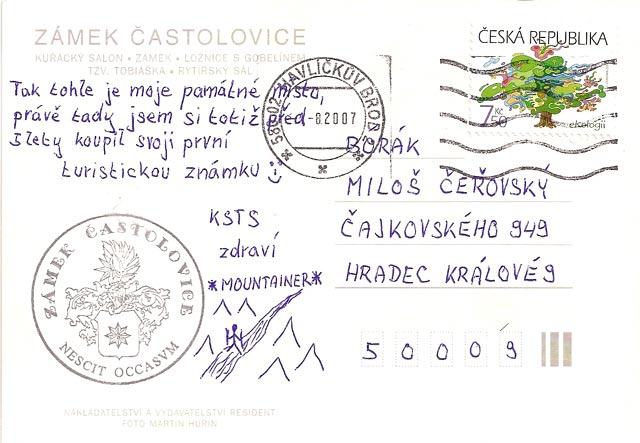 ZÁMEK ČASTOLOVICE
KUŘÁCKÝ SALON • ZÁMEK • LOŽNICE S GOBELÍNEM
TZV. TOBIÁŠKA • RYTÍŘSKÝ SÁL
Tak tohle je moje památné místo,
právě tady jsem si totiž před
5 lety koupil svoji první
turistickou známku
KSTS
zdraví
*MOUNTAINER*
ZÁMEK ČASTOLOVICE
NESCIT OCCASVM
NAKLADATELSTVÍ A VYDAVATELSTVÍ RESIDENT
FOTO MARTIN HURIN
HAVLÍČKŮV BROD 2
-8.2007
ČESKÁ REPUBLIKA
7,50 Kč
ekologii
BORÁK
MILOŠ ČEŘOVSKÝ
ČAJKOVSKÉHO 949
HRADEC KRÁLOVÉ 9
5 0 0 0 9